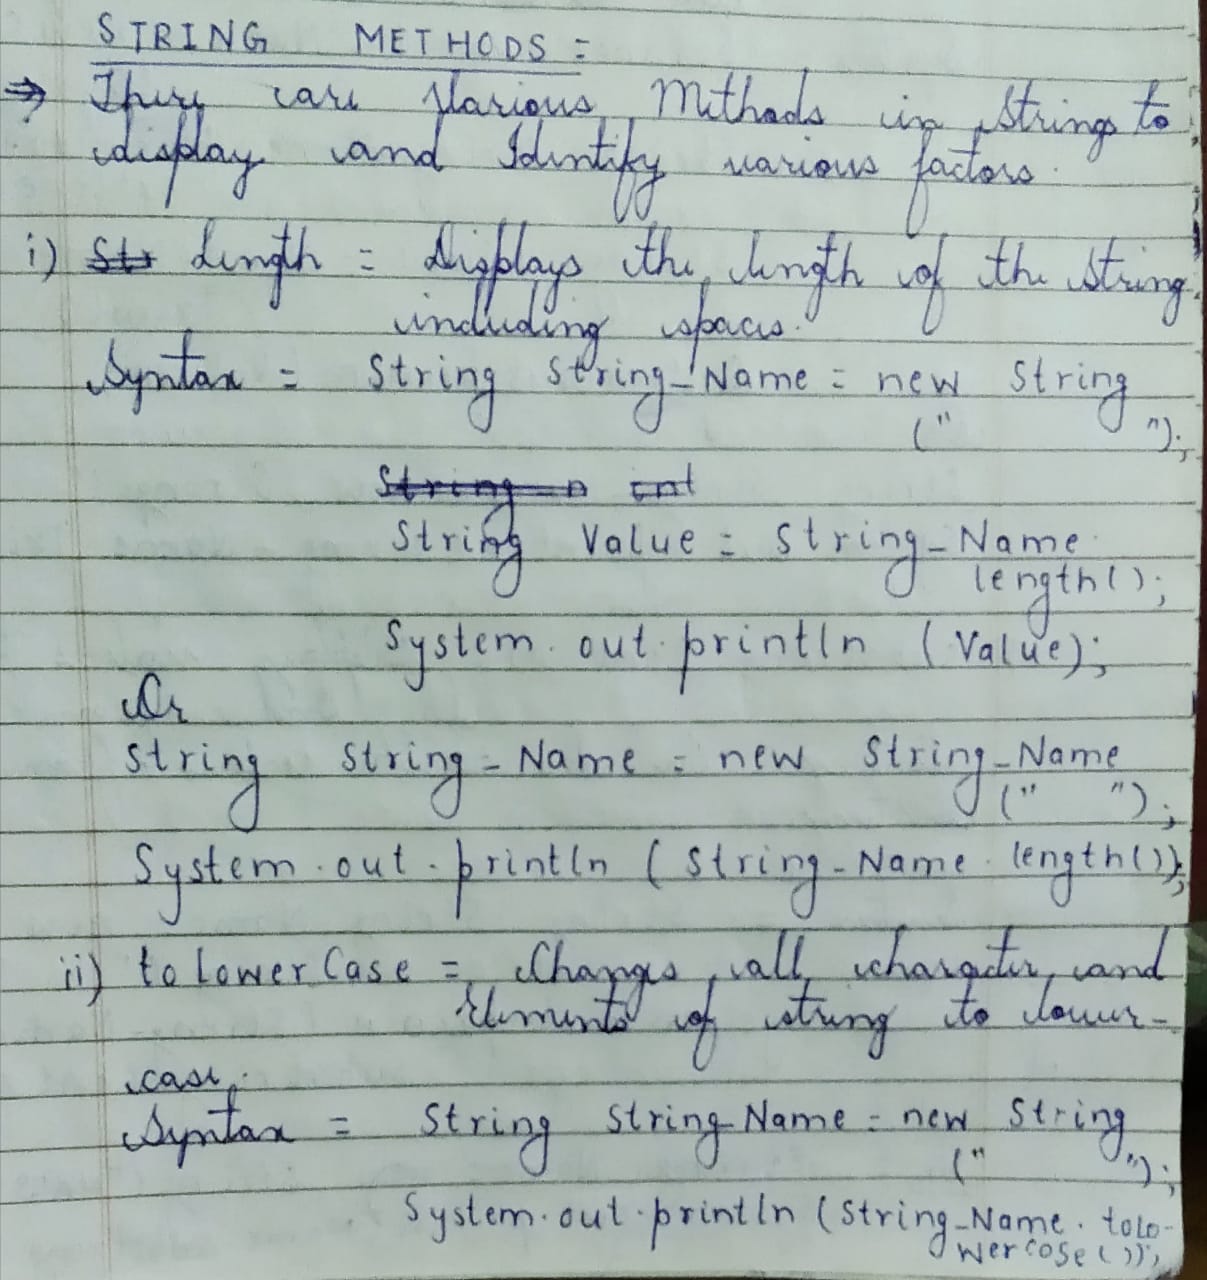 STRING METHODS =
⇒ There are Various Methods in Strings to
display and Identify various factors.
i) Length = Displays the length of the String
including spaces.
Syntax = String String_Name = new String
("          ");
String Value = String_Name.
length();
System.out.println (Value);
Or
String String_Name = new String_Name
("     ");
System.out.println (String_Name.length());
ii) to Lower Case = Changes all character and
Elements of string to lower-
case.
Syntax = String String_Name = new String
("          ");
System.out.println (String_Name.tolo-
wercase());